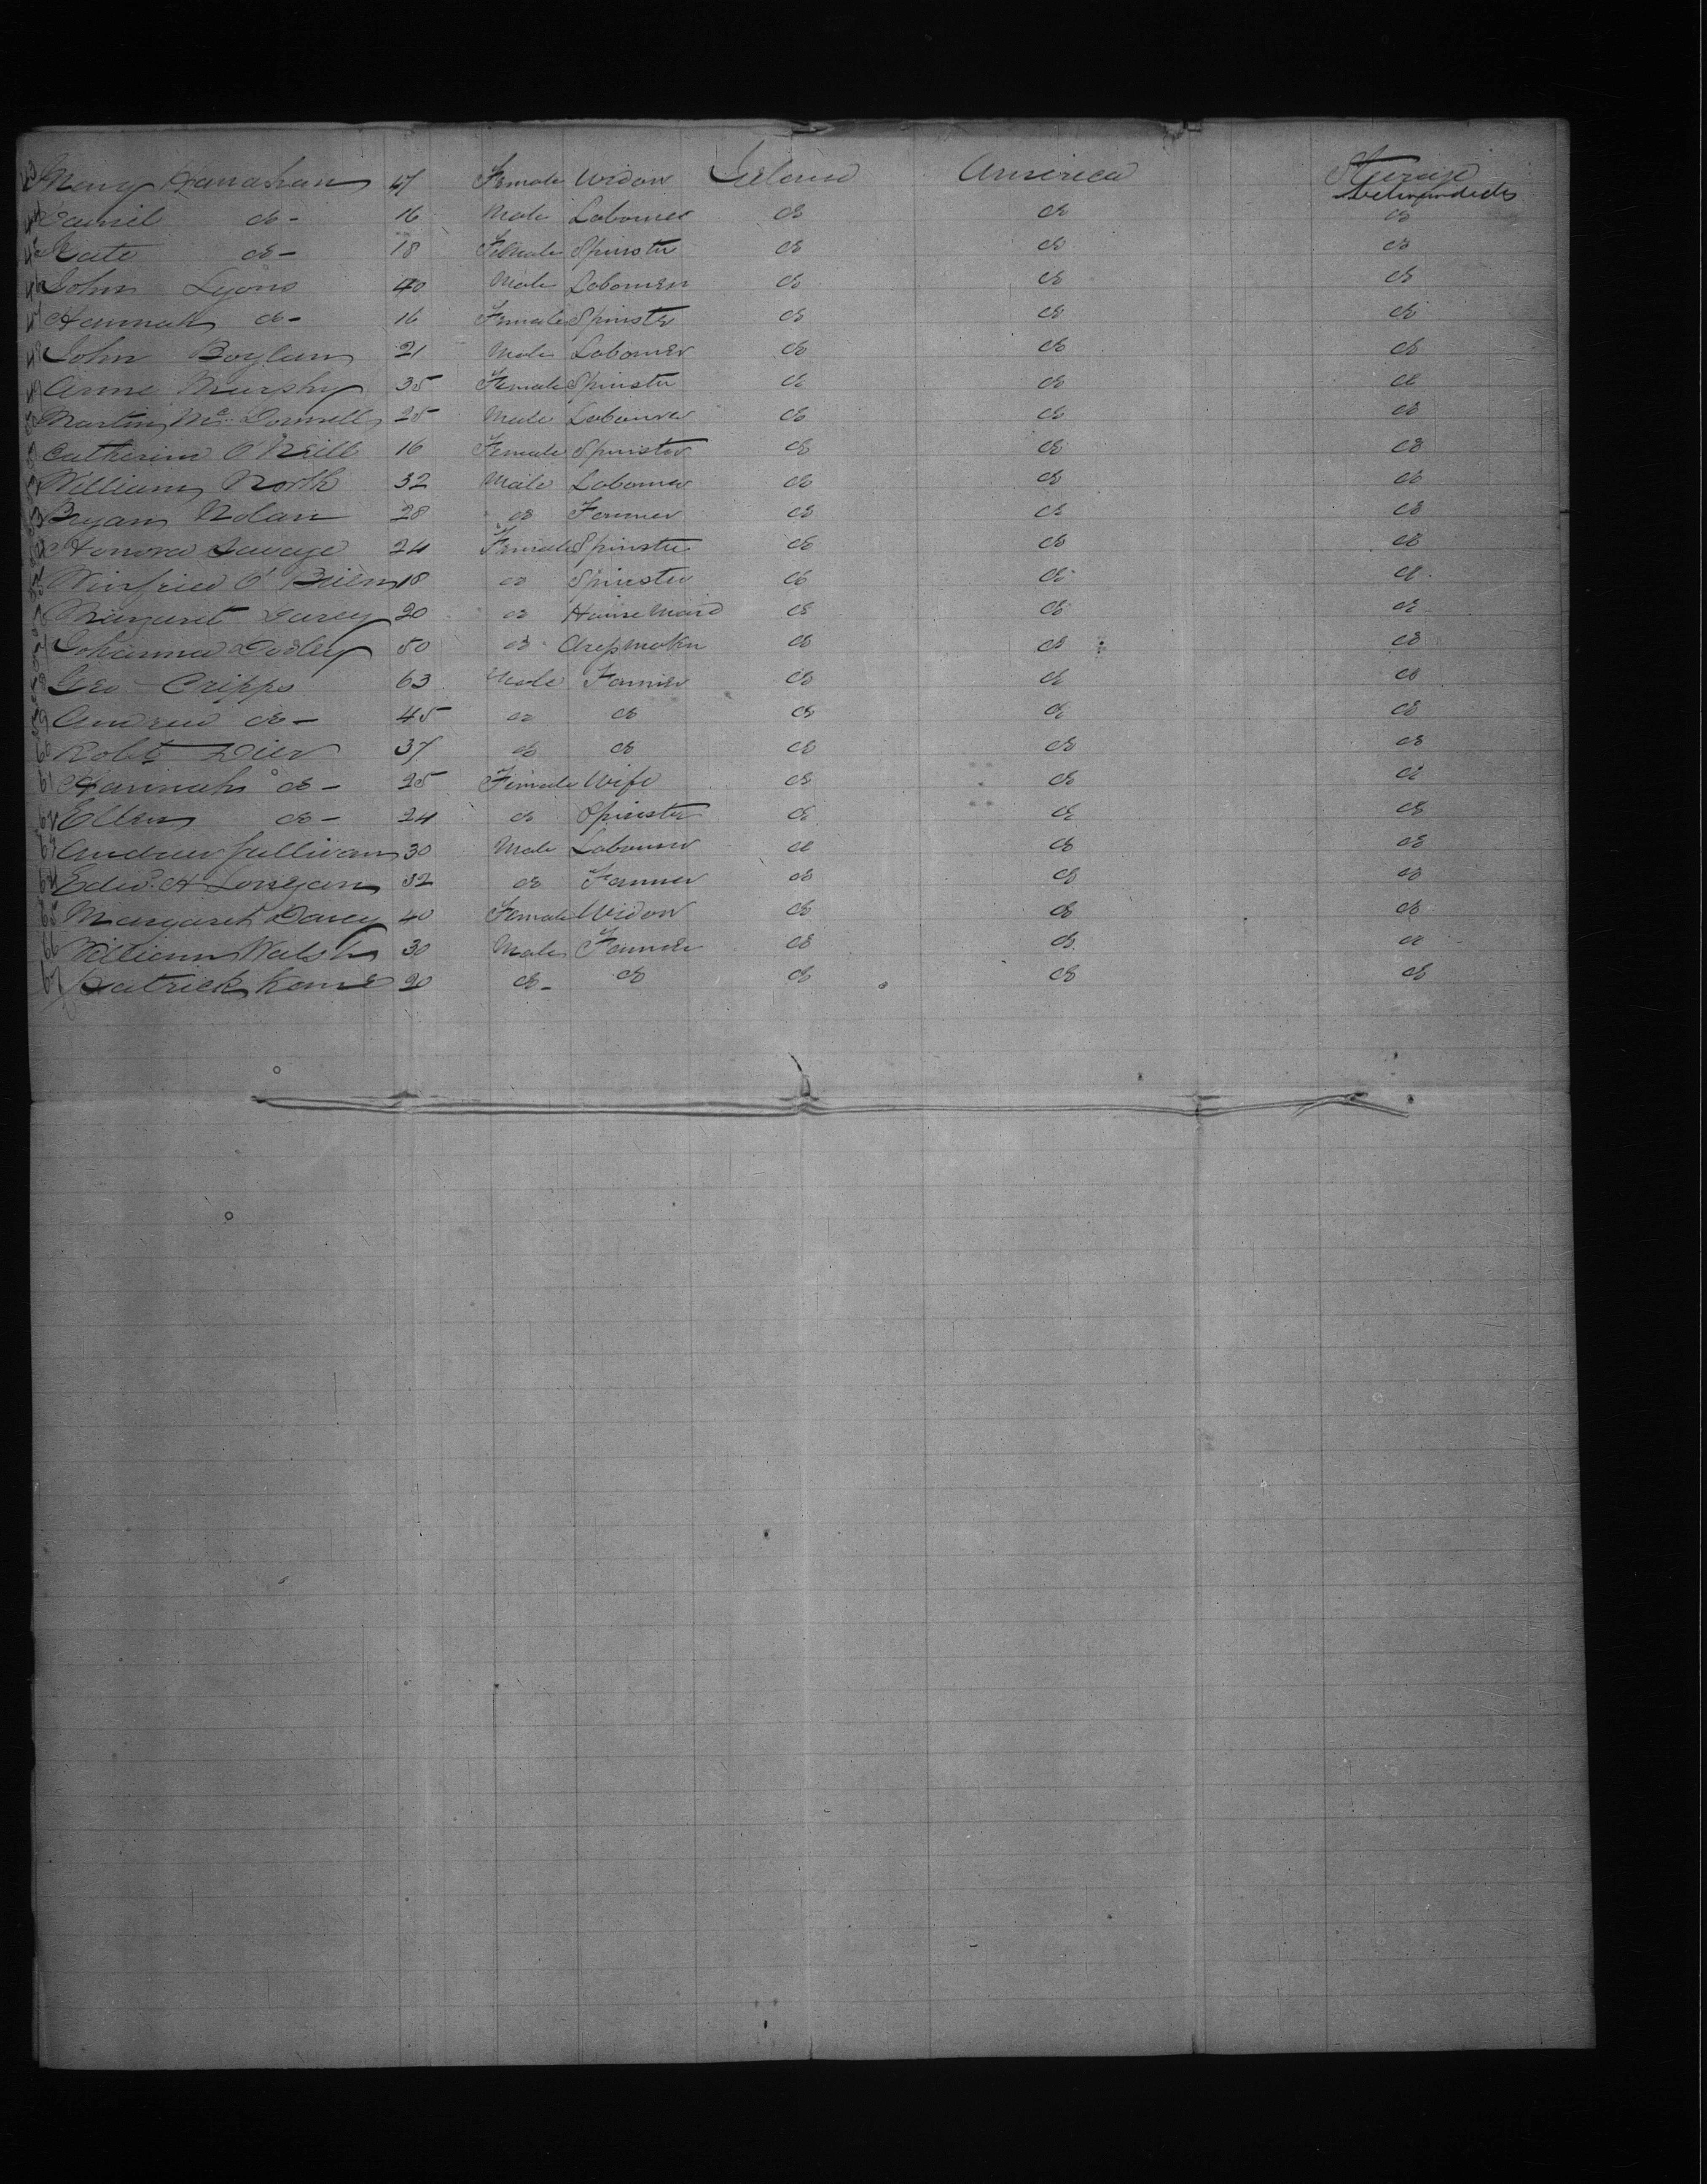 43 Mary Hanrahan 47 Female Widow Ireland America Steerage
44 Daniel do - 16 Male Labourer do do Between decks do
45 Kate do - 18 Female Spinster do do do
46 John Lyons 40 Male Labourer do do do
47 Hannah do - 16 Female Spinster do do do
48 John Boylan 21 Male Labourer do do do
49 Anne Murphy 35 Female Spinster do do do
50 Martin Mc Donnell 25 Male Labourer do do do
51 Catherine O'Neill 16 Female Spinster do do do
52 William North 32 Male Labourer do do do
53 Bryan Nolan 28 do Farmer do do do
54 Honora Savage 24 Female Spinster do do do
55 Winfried O'Brien 18 do Spinster do do do
56 Margaret Darcy 20 do House Maid do do do
57 Johanna Dooley 50 do Dressmaker do do do
58 Geo Cripps 63 Male Farmer do do do
59 Andrew do - 45 do do do do do
60 Robt Dier 37 do do do do do
61 Hannah do - 25 Female Wife do do do
62 Ellen do - 24 do Spinster do do do
63 Andrew Sullivan 30 Male Labourer do do do
64 Edwd. A Lonegan 32 do Farmer do do do
65 Margaret Davey 40 Female Widow do do do
66 William Walsh 30 Male Farmer do do do
67 Patrick Kane 20 do - do do do do